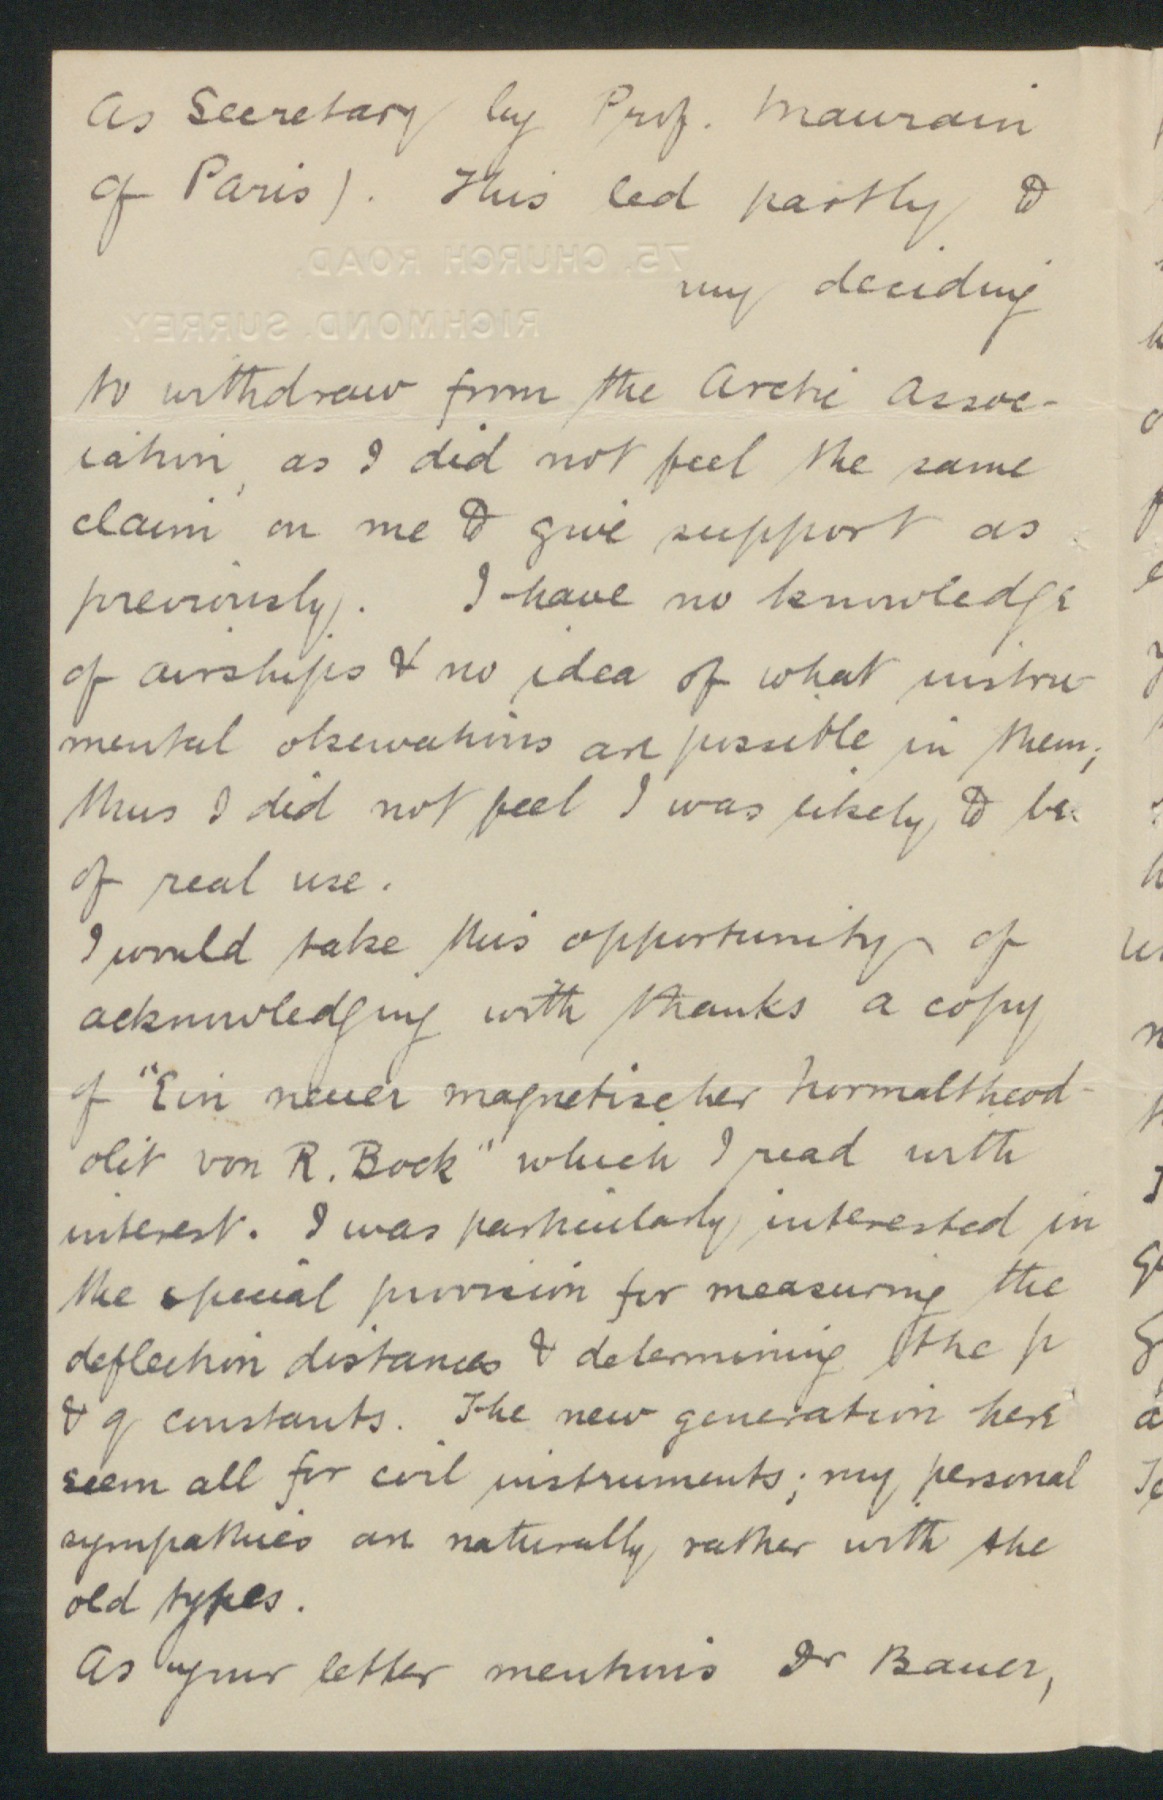 as Secretary by Prof. Maurain
of Paris). This led partly to
75, CHURCH ROAD,
my deciding
RICHMOND, SURREY
to withdraw from the Arctic Assoc-
iation, as I did not feel the same
claim on me to give support as
previously. I have no knowledge
of airships & no idea of what instru-
mental observations are possible in them;
thus I did not feel I was likely to be
of real use.
I would take this opportunity of
acknowledging with thanks a copy
of "Ein neuer magnetischer Normaltheod-
olit von R. Bock" which I read with
interest. I was particularly interested in
the special provision for measuring the
deflection distances & determining the p
& q constants. The new generation here
seem all for coil instruments; my personal
sympathies are naturally rather with the
old types.
As your letter mentions Dr Bauer,